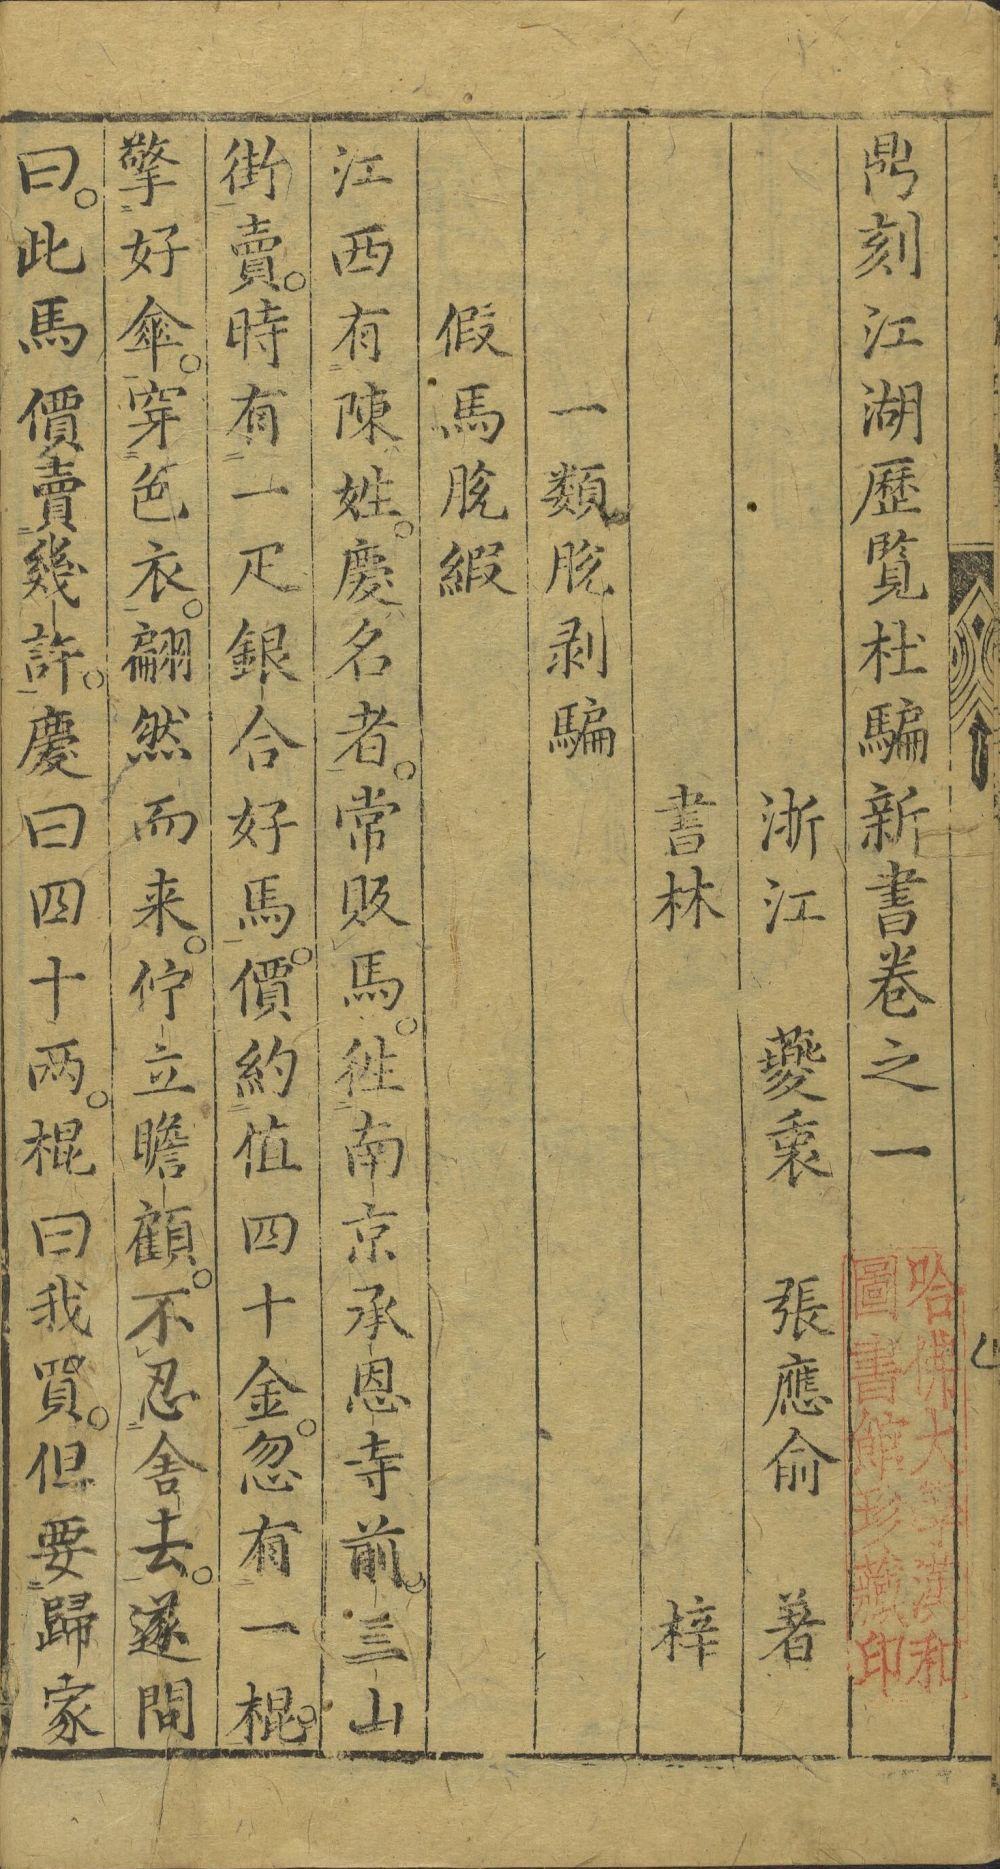 鼎刻江湖歷覽杜騙新書卷之一
浙江 夔衷 張應俞 著
書林 梓
一類脫剥騙
假馬脫緞
江西有陳姓。慶名者。常販馬。徃南京承恩寺前。三山
街賣。時有一疋銀合好馬。價約值四十金。忽有一棍。
擎好傘。穿色衣。翩然而来。佇立瞻顧。不忍舍去。遂問
曰。此馬價賣幾許。慶曰四十两。棍曰我買。但要歸家
哈佛大學漢和
圖書館珍藏印